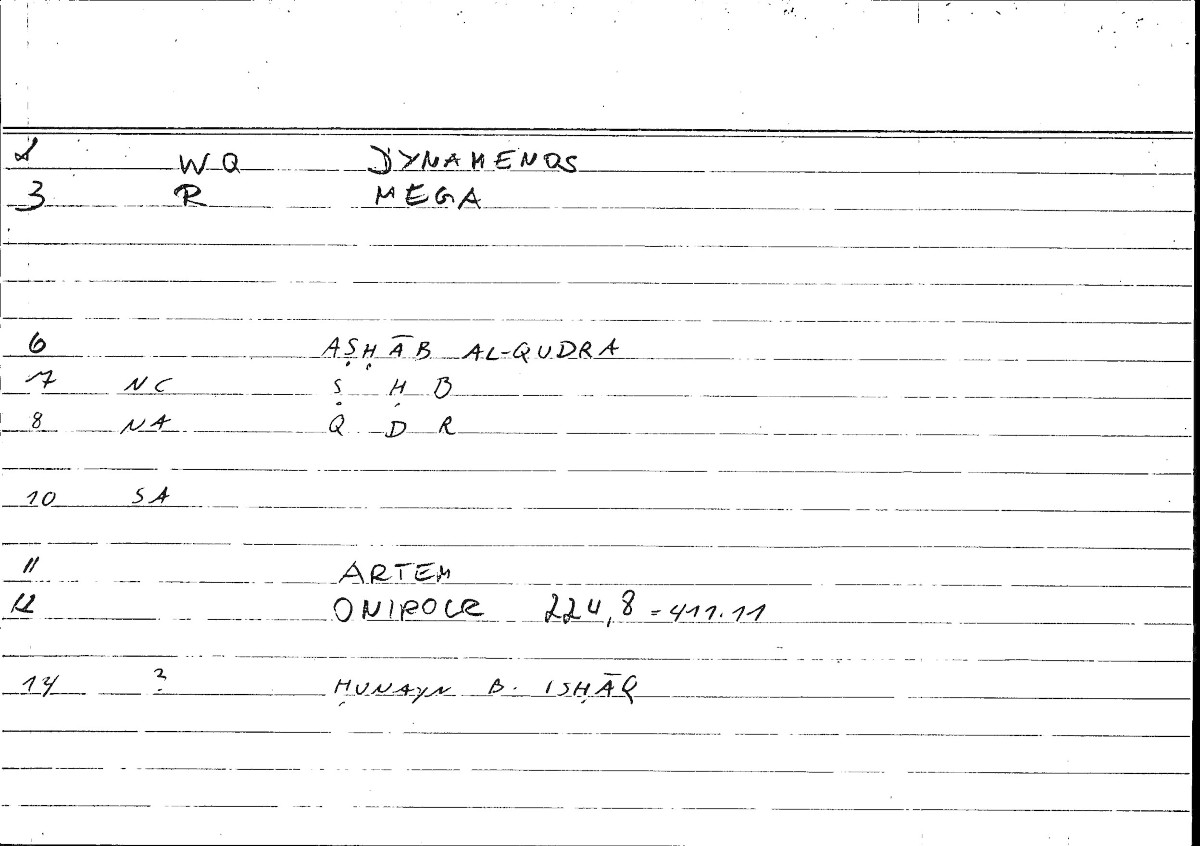 2 WQ DYNAMENOS
3 R MEGA
6 AṢḤĀB AL-QUDRA
7 NC Ṣ Ḥ B
8 NA Q D R
10 SA
11 ARTEM
12 ONIROCR 224,8 = 411.11
14 ? ḤUNAYN B. ISḤĀQ